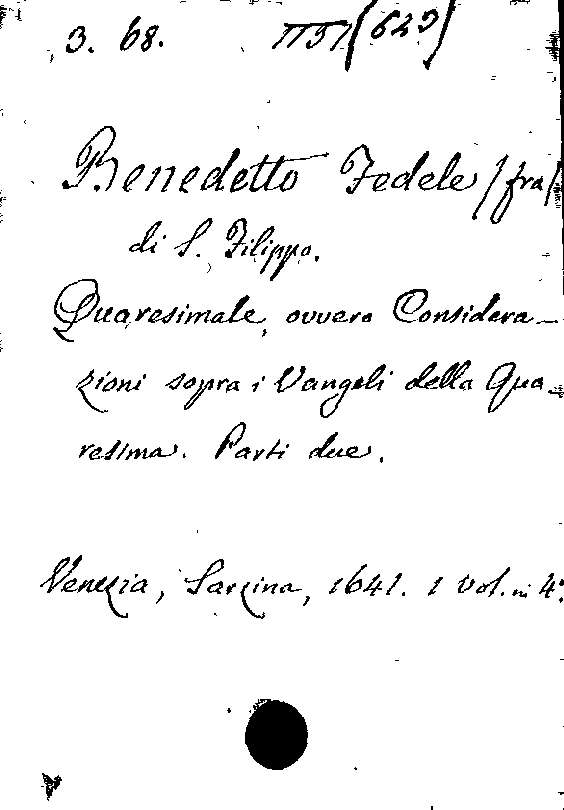 3. 68. 1151 (629)
Benedetto Fedele / fra /
di S. Filippo.
Quaresimale, ovvero Considera-
zioni sopra i Vangeli della Qua-
resima. Parti due.
Venezia, Sarzina, 1641. 1 vol. in 4°.